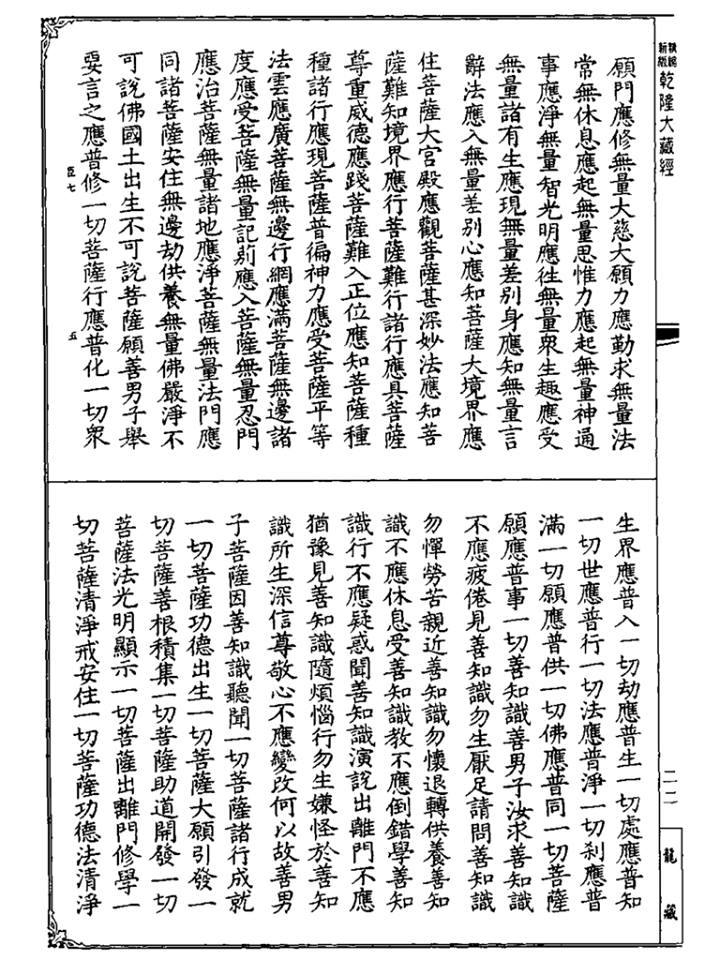 新編縮版
乾隆大藏經
願門應修無量大慈大願力應勤求無量法
常無休息應起無量思惟力應起無量神通
事應淨無量智光明應往無量衆生趣應受
無量諸有生應現無量差別身應知無量言
辭法應入無量差別心應知菩薩大境界應
住菩薩大宮殿應觀菩薩甚深妙法應知菩
薩難知境界應行菩薩難行諸行應具菩薩
尊重威德應踐菩薩難入正位應知菩薩種
種諸行應現菩薩普徧神力應受菩薩平等
法雲應廣菩薩無邊行網應滿菩薩無邊諸
度應受菩薩無量記莂應入菩薩無量忍門
應治菩薩無量諸地應淨菩薩無量法門應
同諸菩薩安住無邊劫供養無量佛嚴淨不
可說佛國土出生不可說菩薩願善男子舉
要言之應普修一切菩薩行應普化一切衆
臣七
五
生界應普入一切劫應普生一切處應普知
一切世應普行一切法應普淨一切刹應普
滿一切願應普供一切佛應普同一切菩薩
願應普事一切善知識善男子汝求善知識
不應疲倦見善知識勿生厭足請問善知識
勿憚勞苦親近善知識勿懷退轉供養善知
識不應休息受善知識教不應倒錯學善知
識行不應疑惑聞善知識演說出離門不應
猶豫見善知識隨煩惱行勿生嫌怪於善知
識所生深信尊敬心不應變改何以故善男
子菩薩因善知識聽聞一切菩薩諸行成就
一切菩薩功德出生一切菩薩大願引發一
切菩薩善根積集一切菩薩助道開發一切
菩薩法光明顯示一切菩薩出離門修學一
切菩薩清淨戒安住一切菩薩功德法清淨
龍藏